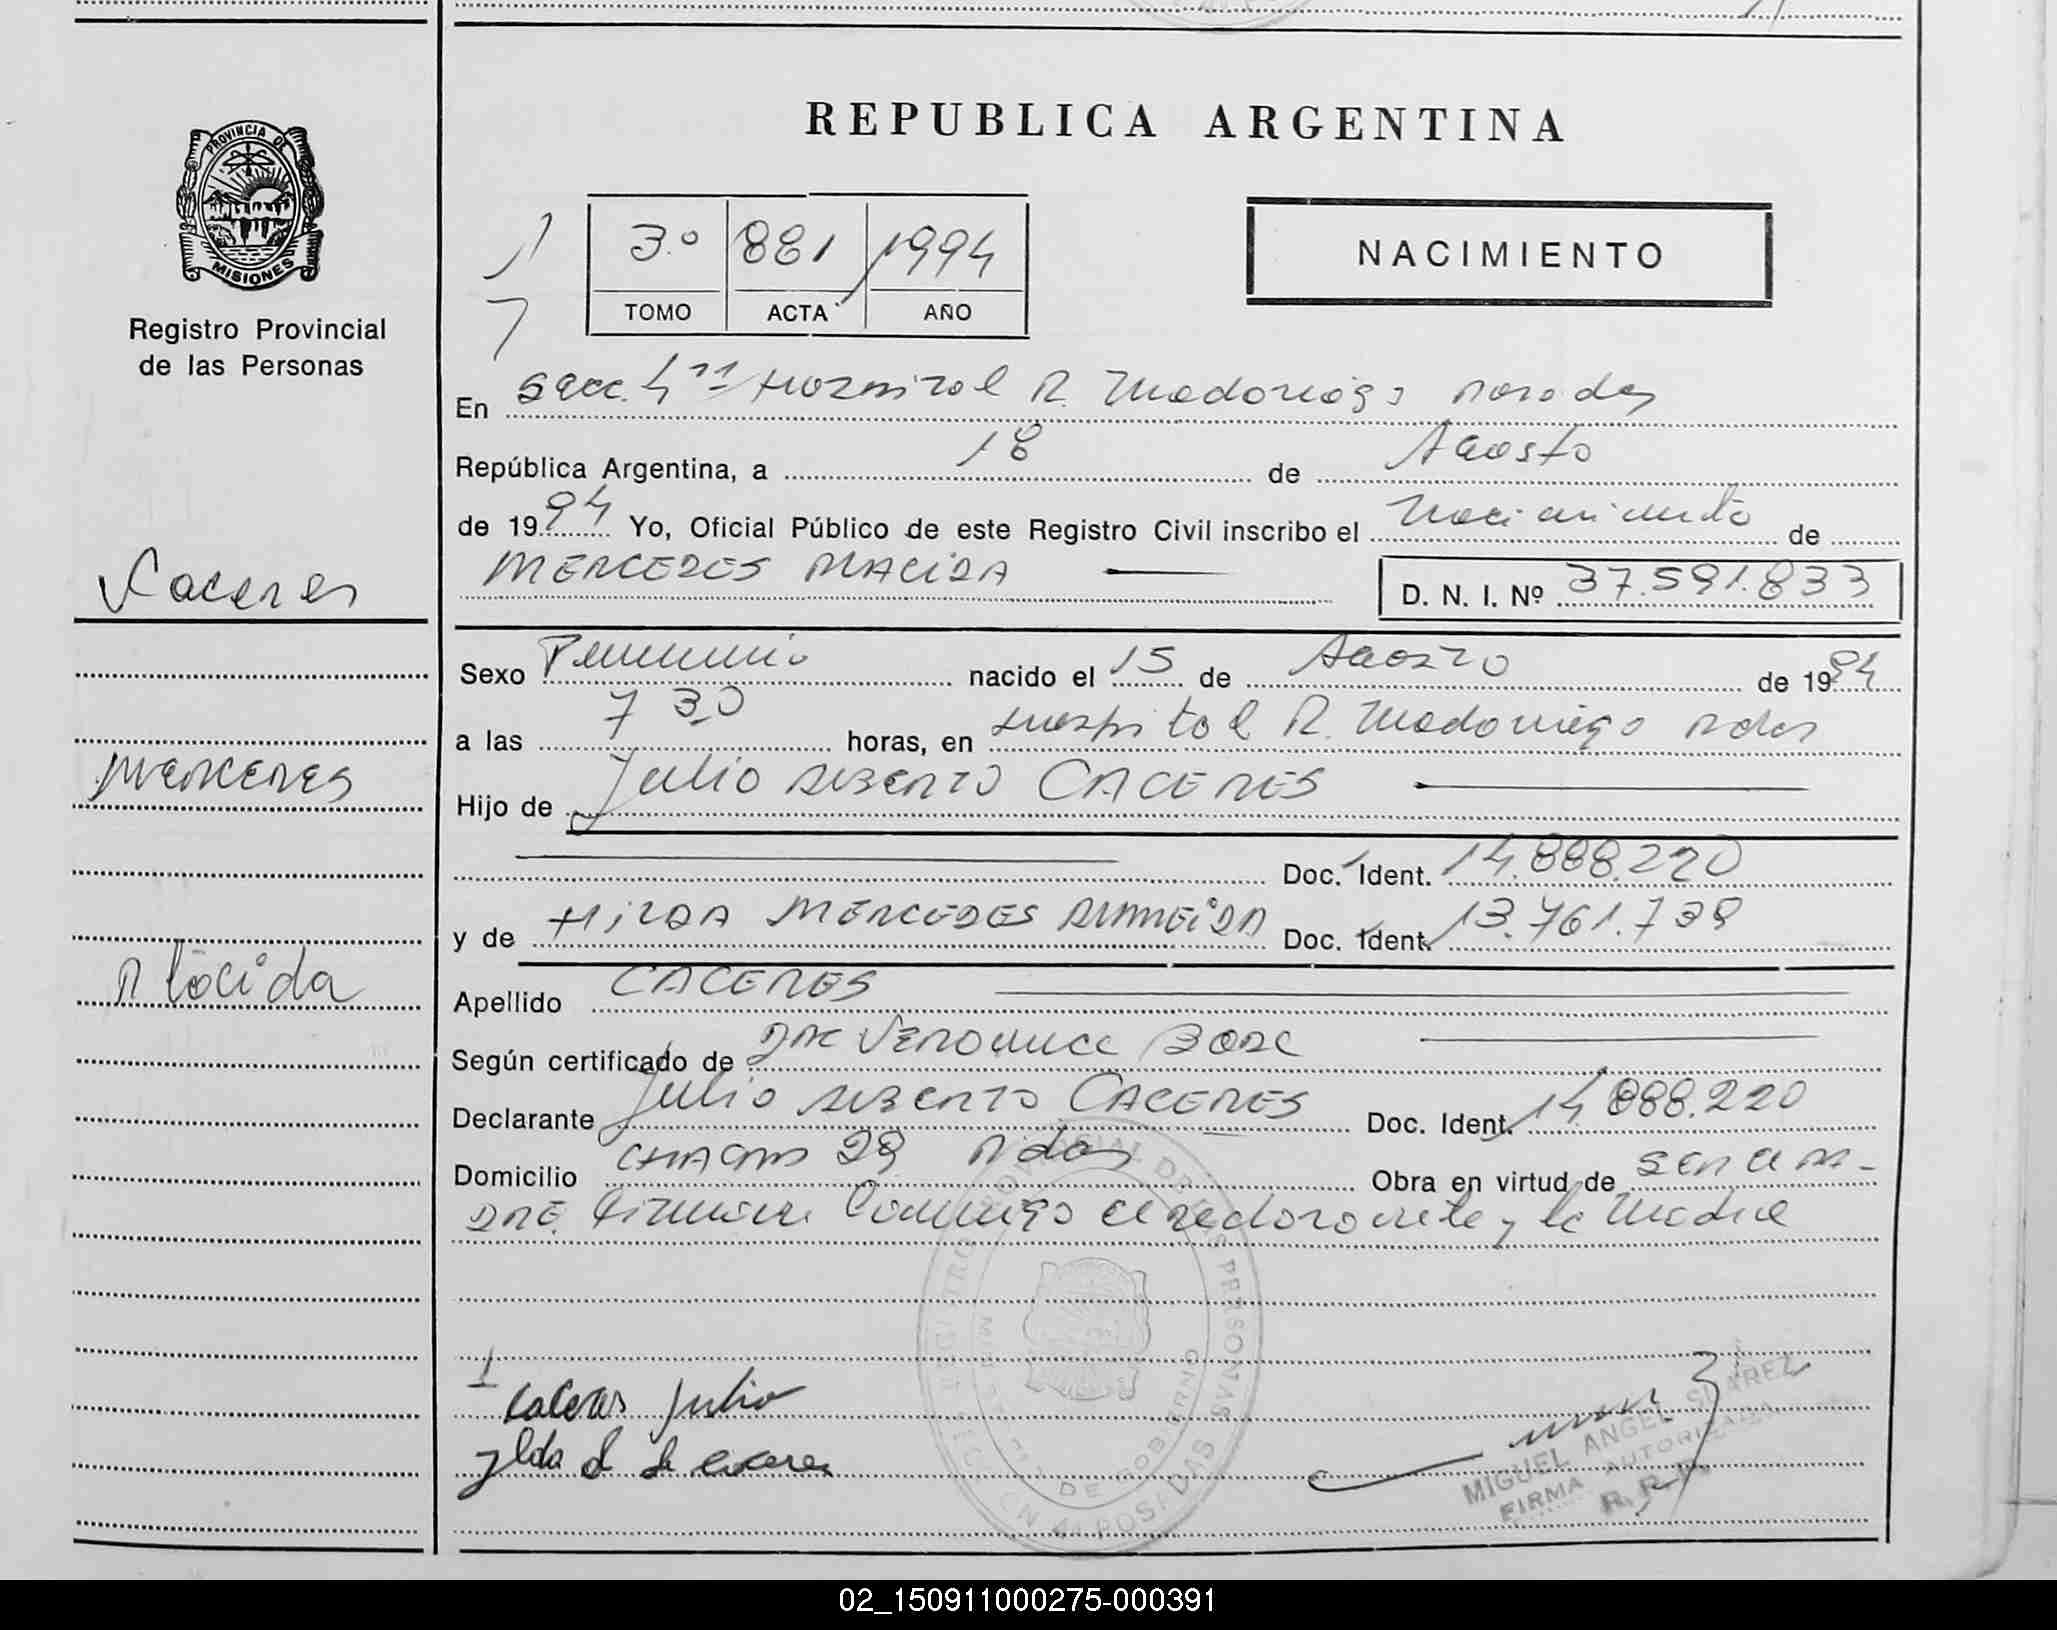 REPUBLICA ARGENTINA
PROVINCIA DE
MISIONES
Registro Provincial
de las Personas
3.º 881 1994
TOMO ACTA AÑO
NACIMIENTO
En Secc. 4ta Hospital R. Madariaga Posadas
República Argentina, a 18 de Agosto
de 1994 Yo, Oficial Público de este Registro Civil inscribo el Nacimiento de
MERCEDES PLACIDA
D. N. I. Nº 37.591.833
Caceres
Mercedes
Placida
Sexo Femenino nacido el 15 de Agosto de 1994
a las 7 30 horas, en Hospital R. Madariaga Pdas
Hijo de Julio Alberto CACERES
Doc. Ident. 14.888.220
y de HILDA MERCEDES ALMEIDA Doc. Ident. 13.761.739
Apellido CACERES
Según certificado de DRA VERONICA
Declarante Julio Alberto CACERES Doc. Ident. 14.888.220
Domicilio 29 Pdas Obra en virtud de ser el PA-
DRE. Firman Conmigo el declarante y la Madre
REGISTRO PROVINCIAL DE LAS PERSONAS
DE GOBIERNO
POSADAS
Caceres Julio
Ylda d de caceres
MIGUEL ANGEL SUAREZ
FIRMA AUTORIZADA
R. P. P.
02_150911000275-000391